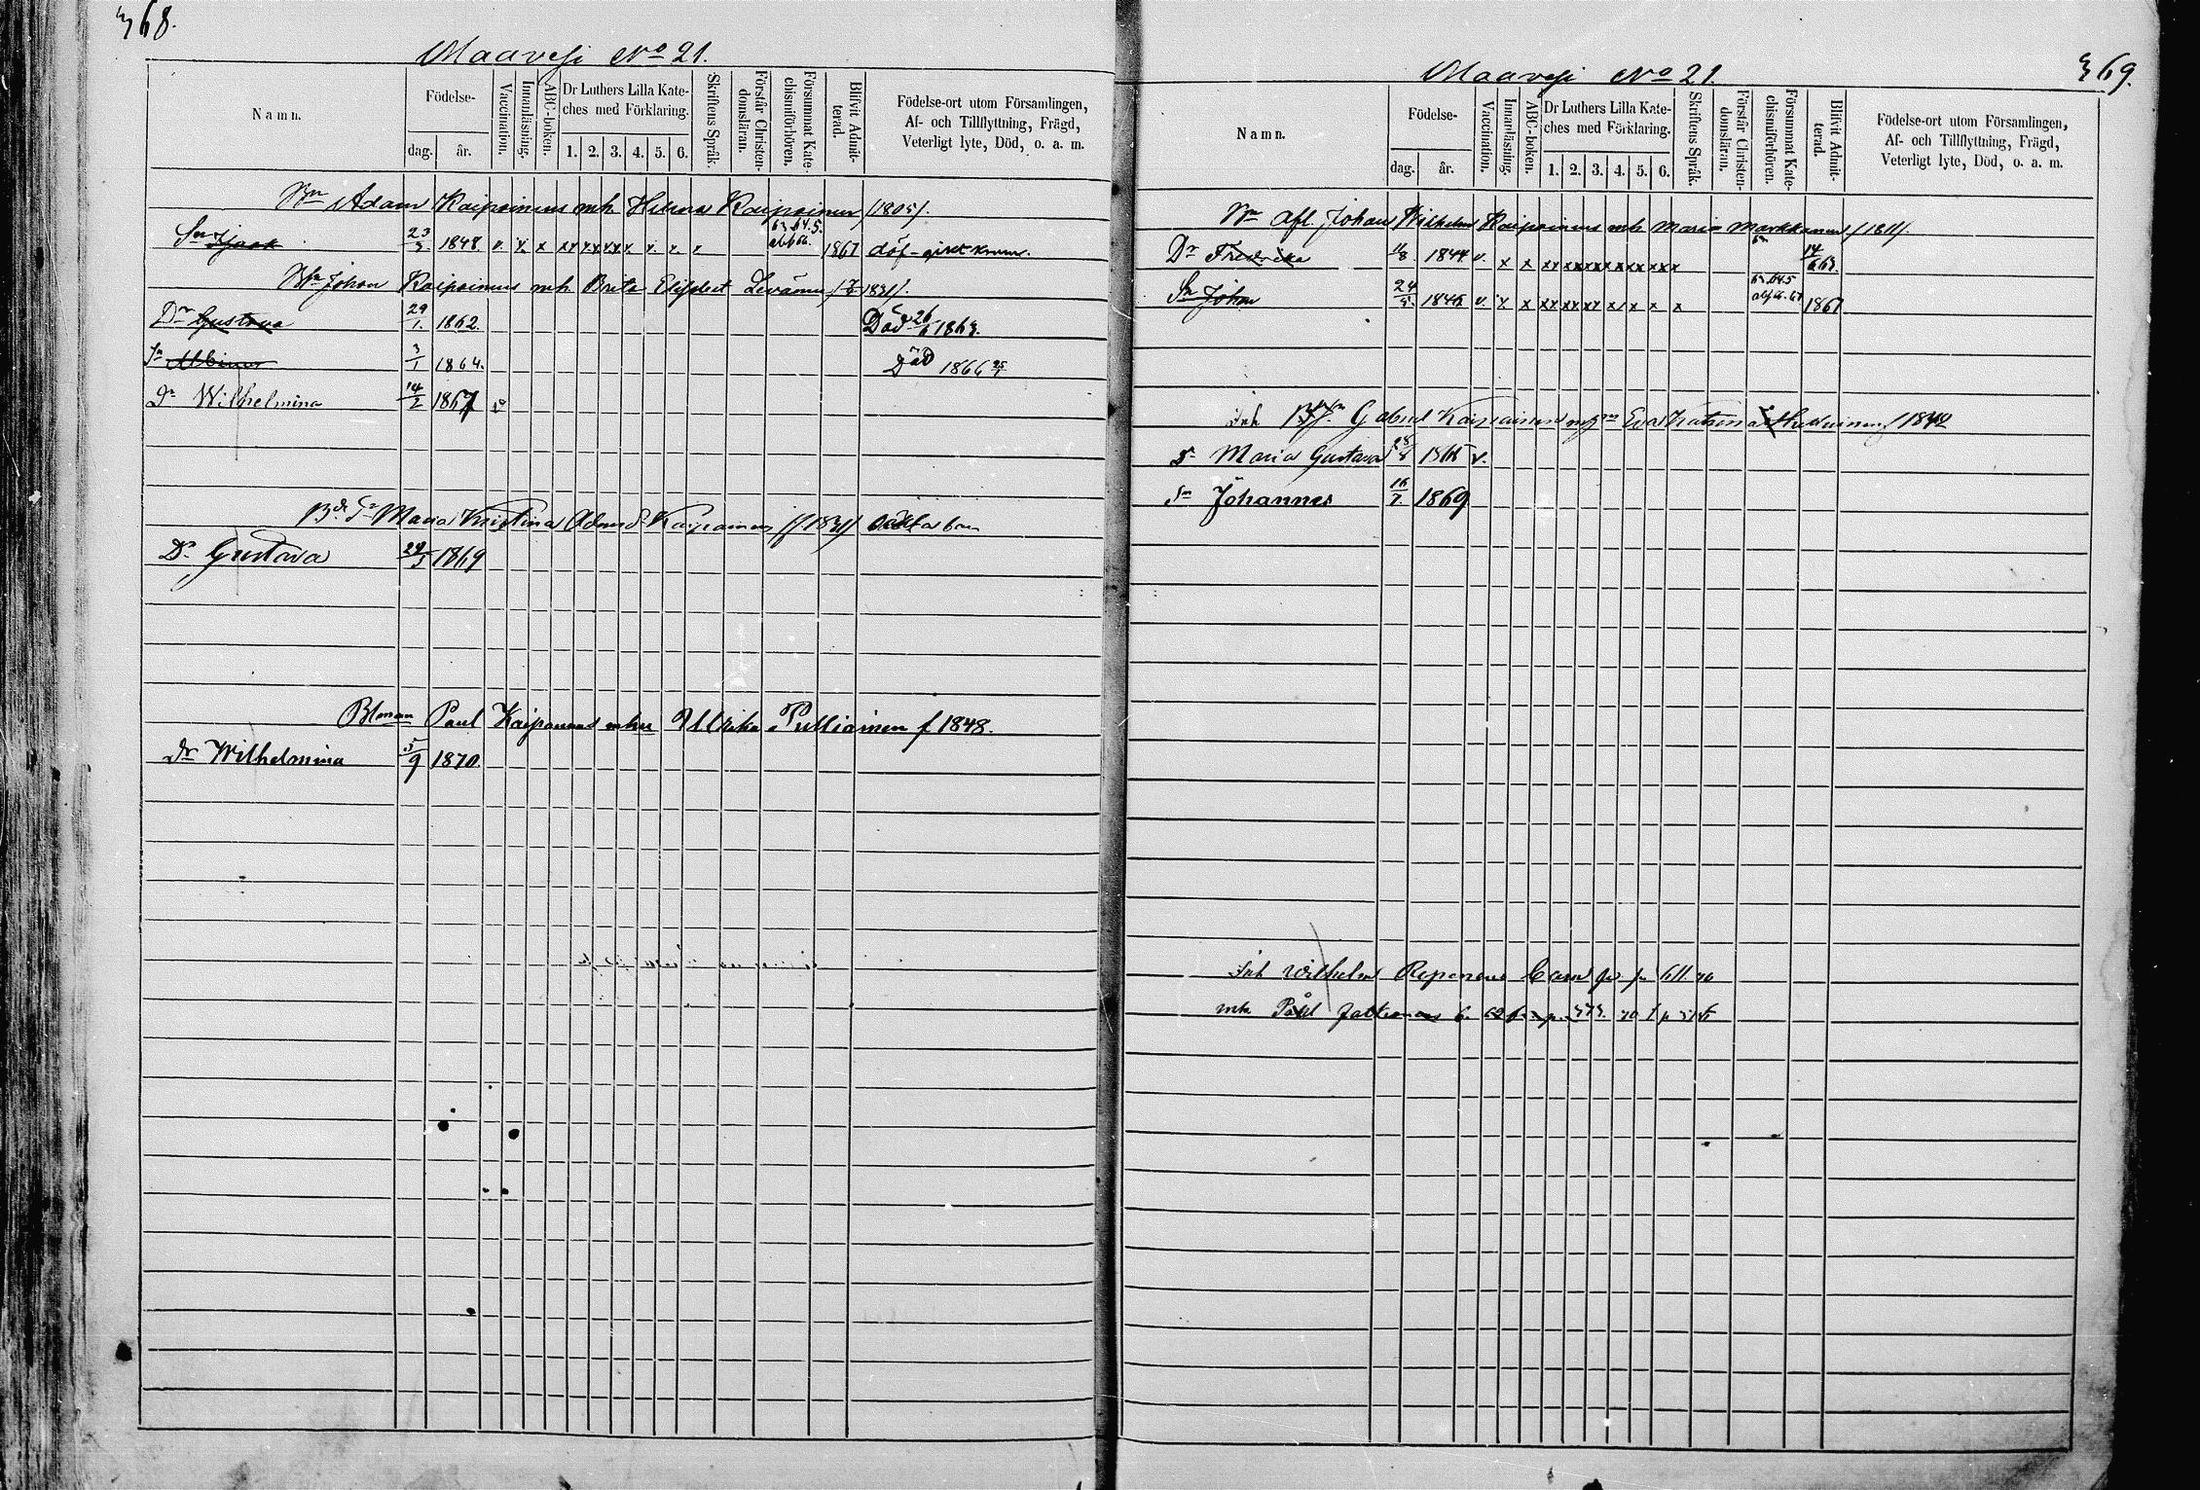 368.
Maavesi No 21.
Namn.
Födelse-
dag. år.
Vaccination.
Innanläsning.
ABC-boken.
Dr Luthers Lilla Kate-
ches med Förklaring.
1. 2. 3. 4. 5. 6.
Skriftens Språk.
Förstår Christen-
domsläran.
Försummat Kate-
chismiförhören.
Blifvit Admit-
terad.
Födelse-ort utom Församlingen,
Af- och Tillflyttning, Frägd,
Veterligt lyte, Död, o. a. m.
Adam Kaipainens mh Helena Kaipainen /1805/.
Sn Isaak 23/3 1848 v. x x xx xx xx x x. x. x 1867 döf
Johan Kaipainens mh Brita Elisabet Levänen 1831/.
Dr Gustava 29/1. 1862. Död 26/6 1863.
Sn Albinus 3/1 1864. Död 1866 25/1
Dr Wilhelmina 14/2 1867 v
Maria Kristina Adams d. Kaipainens /1831/
Dr Gustava 29/3 1869
Paul Kaipainens mhu Ulrika Pulliainen f 1848.
Dr Wilhelmina 5/9 1870.
369.
Maavesi No 21.
Namn.
Födelse-
dag. år.
Vaccination.
Innanläsning.
ABC-boken.
Dr Luthers Lilla Kate-
ches med Förklaring.
1. 2. 3. 4. 5. 6.
Skriftens Språk.
Förstår Christen-
domsläran.
Försummat Kate-
chismiförhören.
Blifvit Admit-
terad.
Födelse-ort utom Församlingen,
Af- och Tillflyttning, Frägd,
Veterligt lyte, Död, o. a. m.
afl. Johan Wilhelm Kaipainens mh Maria Markkanen /1811/.
Dr Fredrika 16/8 1844 v. x x xx xx xx xx xx xxx 14/6 63.
Sn Johan 24/5 1846 v. x x xx xx xx x x x x x 1867
Inh Gabriel Kaipainens Eva Katarina
Dr Maria Gustava 1866 v.
Sn Johannes 16/7. 1869
Inh Wilhelm Reponens p. 611.
mh Påhl p. 373. 70